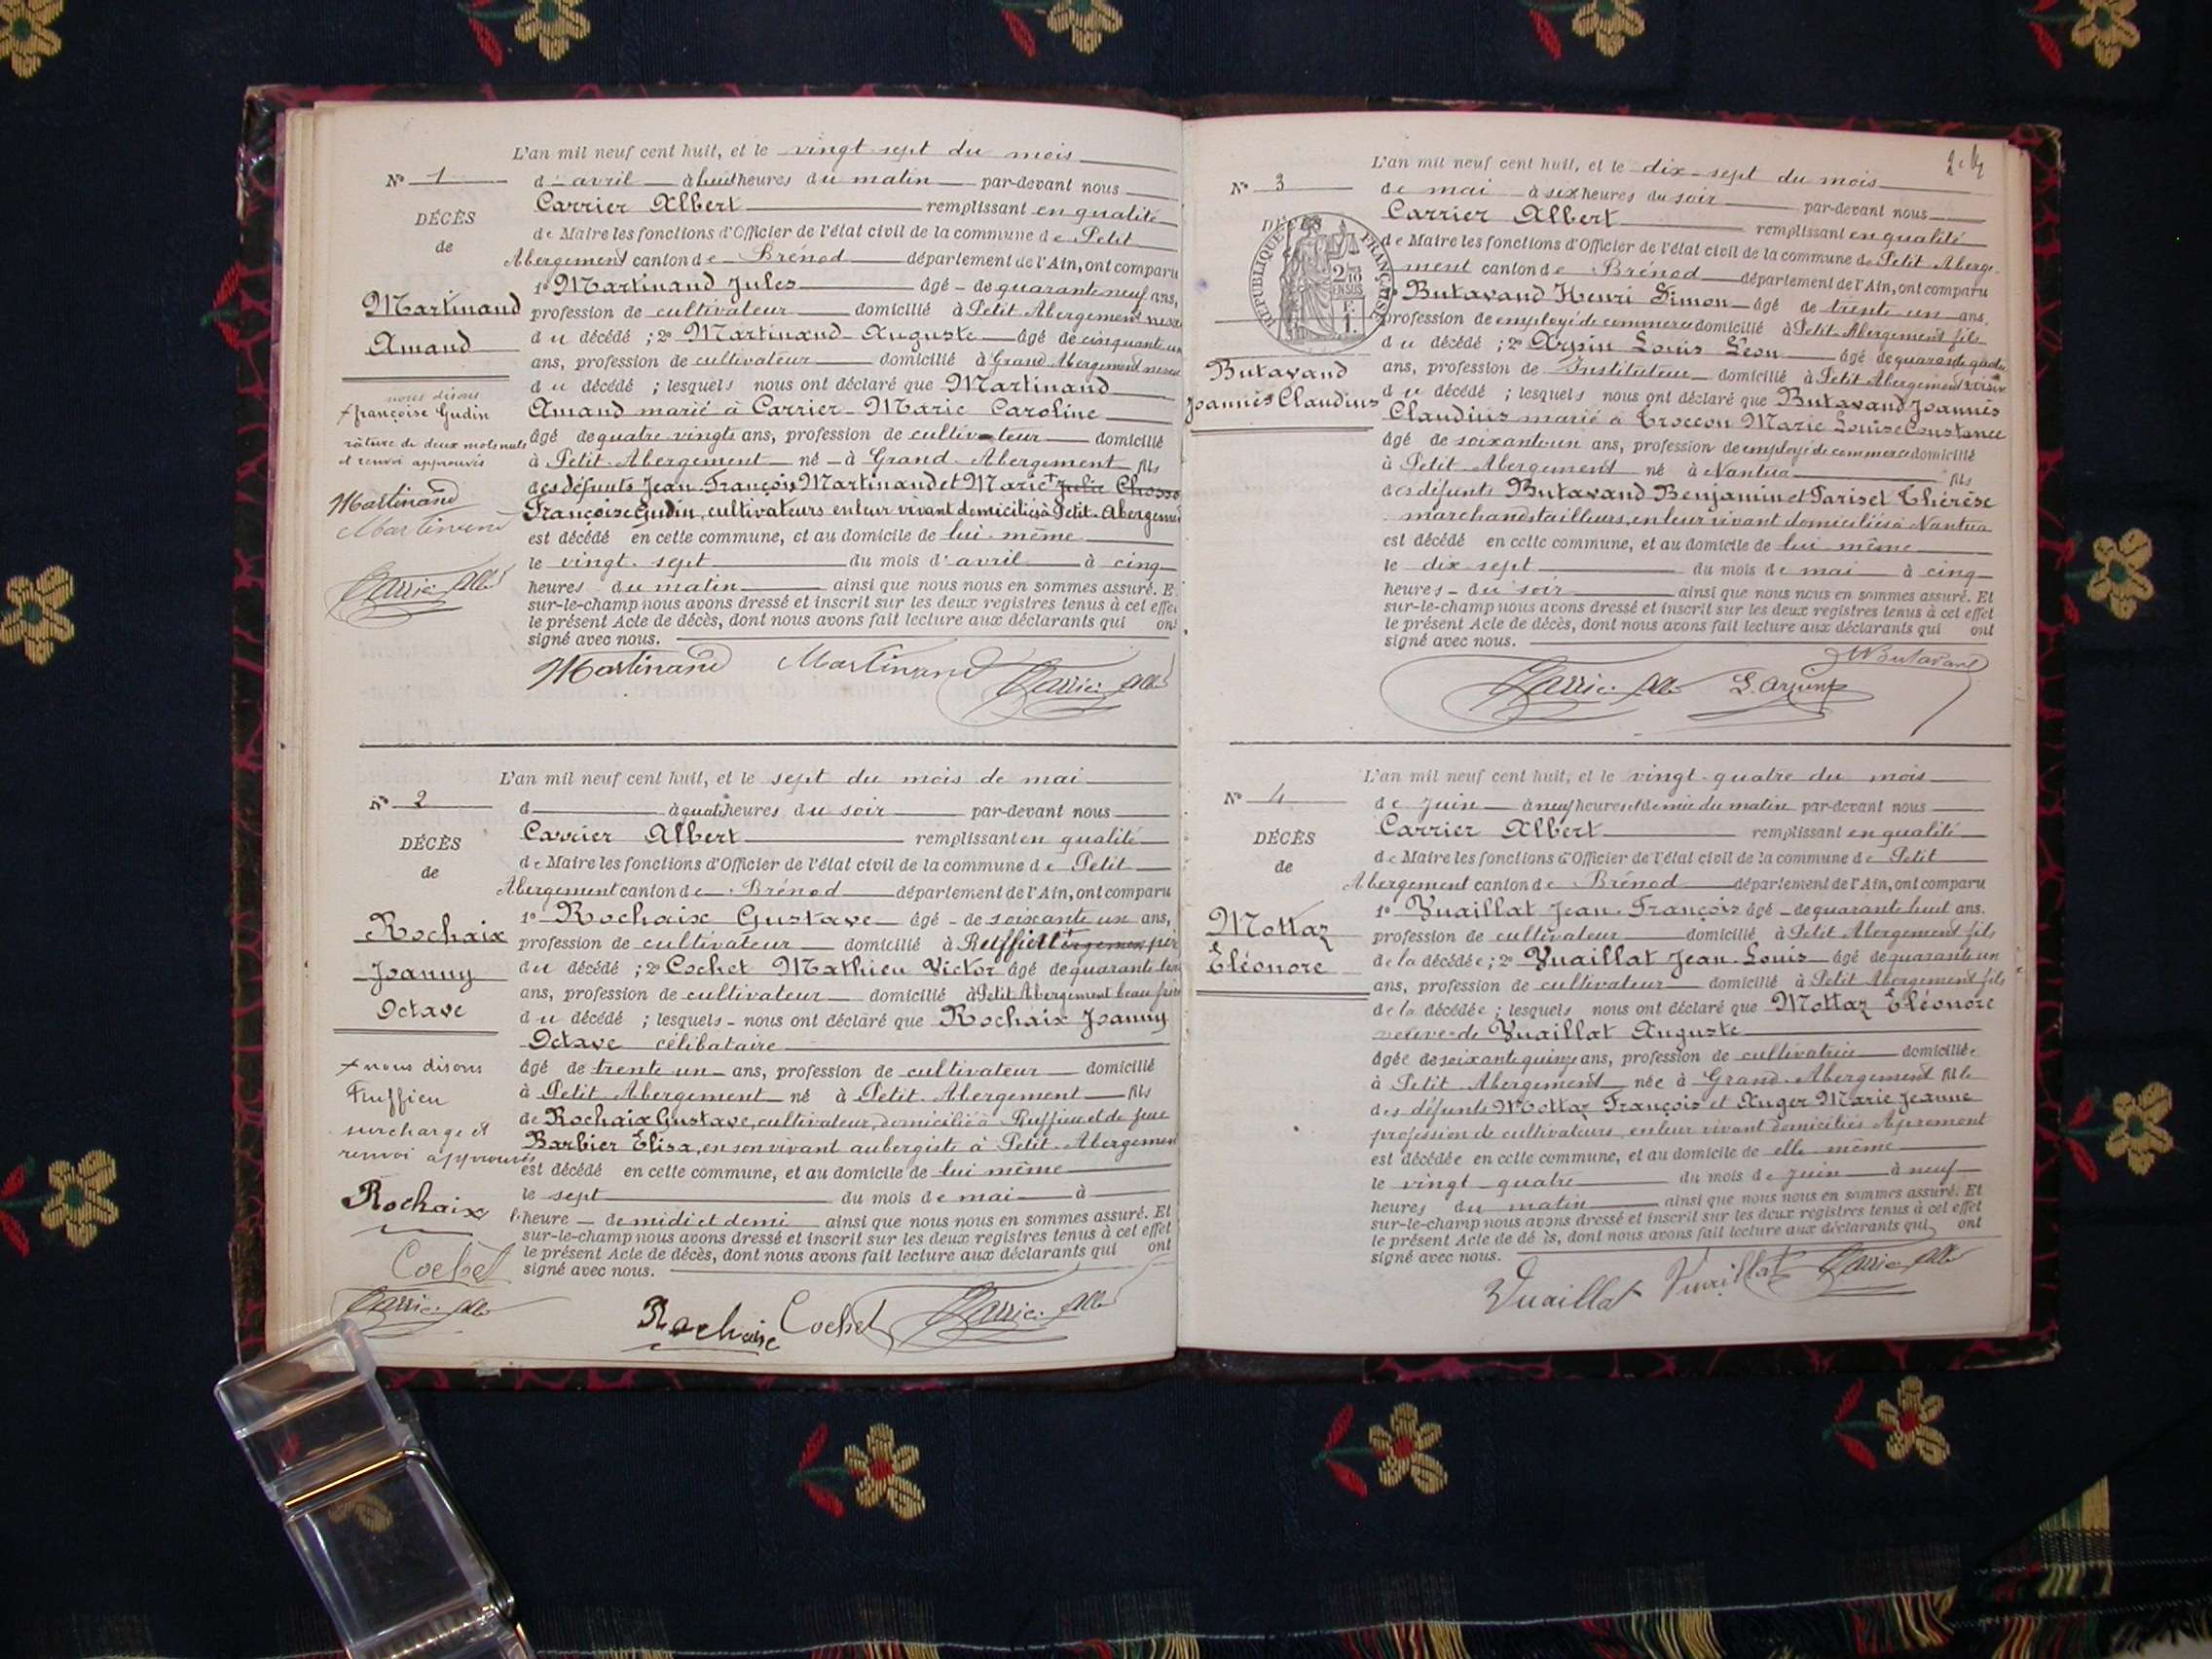 L'an mil neuf cent huit, et le vingt-sept du mois
N° 1
d'avril à huit heures du matin par-devant nous
DÉCÈS
de
Carrier Albert remplissant en qualité
de Maire les fonctions d'Officier de l'état civil de la commune de Petit
Abergement canton de Brénod département de l'Ain, ont comparu
Martinand
Amand
1° Martinand Jules âgé de quarante neuf ans,
profession de cultivateur domicilié à Petit Abergement neveu
du décédé ; 2° Martinand Auguste âgé de cinquante un
ans, profession de cultivateur domicilié à Grand Abergement neveu
du décédé ; lesquels nous ont déclaré que Martinand
Amand marié à Carrier Marie Caroline
âgé de quatre vingts ans, profession de cultivateur domicilié
à Petit-Abergement né à Grand-Abergement fils
des défunts Jean François Martinand et Marie + Julie Chosso
Françoise Gudin, cultivateurs en leur vivant domiciliés à Petit-Abergement
est décédé en cette commune, et au domicile de lui-même
le vingt-sept du mois d'avril à cinq
heures du matin ainsi que nous nous en sommes assuré. E
sur-le-champ nous avons dressé et inscrit sur les deux registres tenus à cet effet
le présent Acte de décès, dont nous avons fait lecture aux déclarants qui ont
signé avec nous.
nous disons
+ françoise Gudin
rature de deux mots nuls
et renvoi approuvés
Martinand
Martinand
Carrier Alb
Martinand Martinand Carrier Alb
L'an mil neuf cent huit, et le sept du mois de mai
N° 2
d à quatre heures du soir par-devant nous
DÉCÈS
de
Carrier Albert remplissant en qualité
de Maire les fonctions d'Officier de l'état civil de la commune de Petit
Abergement canton de Brénod département de l'Ain, ont comparu
Rochaix
Joanny
Octave
1° Rochaix Gustave âgé de soixante un ans,
profession de cultivateur domicilié à Ruffieu père
du décédé ; 2° Cochet Mathieu Victor âgé de quarante
ans, profession de cultivateur domicilié à Petit Abergement beau frère
du décédé ; lesquels nous ont déclaré que Rochaix Joanny
Octave célibataire
âgé de trente un ans, profession de cultivateur domicilié
à Petit Abergement né à Petit-Abergement fils
de Rochaix Gustave, cultivateur, domicilié à Ruffieu et de feue
Barbier Élisa, en son vivant aubergiste à Petit-Abergement
est décédé en cette commune, et au domicile de lui même
le sept du mois de mai à
l'heure de midi et demi ainsi que nous nous en sommes assuré. Et
sur-le-champ nous avons dressé et inscrit sur les deux registres tenus à cet effet
le présent Acte de décès, dont nous avons fait lecture aux déclarants qui ont
signé avec nous.
+ nous disons
Ruffieu
surcharge et
renvoi approuvés
Rochaix
Cochet
Carrier Alb
Rochaix Cochet Carrier Alb
L'an mil neuf cent huit, et le dix-sept du mois
N° 3
de mai à six heures du soir par-devant nous
DÉCÈS
RÉPUBLIQUE FRANÇAISE
Carrier Albert remplissant en qualité
de Maire les fonctions d'Officier de l'état civil de la commune de Petit Aberge-
ment canton de Brénod département de l'Ain, ont comparu
Butavand
Joannès Claudius
1° Butavand Henri Simon âgé de trente un ans,
profession de employé de commerce domicilié à Petit Abergement fils
du décédé ; 2° Arpin Louis Léon âgé de quarante quatre
ans, profession de Instituteur domicilié à Petit Abergement voisin
du décédé ; lesquels nous ont déclaré que Butavand Joannès
Claudius marié à Troccon Marie Louise Constance
âgé de soixante un ans, profession de employé de commerce domicilié
à Petit Abergement né à Nantua fils
des défunts Butavand Benjamin et Pariset Thérèse
marchands tailleurs, en leur vivant domiciliés à Nantua
est décédé en cette commune, et au domicile de lui-même
le dix sept du mois de mai à cinq
heures du soir ainsi que nous nous en sommes assuré. Et
sur-le-champ nous avons dressé et inscrit sur les deux registres tenus à cet effet
le présent Acte de décès, dont nous avons fait lecture aux déclarants qui ont
signé avec nous.
HButavand
Carrier Alb L. Arpin
L'an mil neuf cent huit, et le vingt-quatre du mois
N° 4
de Juin à neuf heures et demie du matin par-devant nous
DÉCÈS
de
Carrier Albert remplissant en qualité
de Maire les fonctions d'Officier de l'état civil de la commune de Petit
Abergement canton de Brénod département de l'Ain, ont comparu
Mottaz
Éléonore
1° Vuaillat Jean-François âgé de quarante huit ans.
profession de cultivateur domicilié à Petit Abergement fils
de la décédée ; 2° Vuaillat Jean-Louis âgé de quarante un
ans, profession de cultivateur domicilié à Petit Abergement fils
de la décédée ; lesquels nous ont déclaré que Mottaz Éléonore
veuve de Vuaillat Auguste
âgée de soixante quinze ans, profession de cultivatrice domiciliée
à Petit Abergement née à Grand-Abergement fille
des défunts Mottaz François et Auger Marie Jeanne
profession de cultivateurs en leur vivant domiciliés Apremont
est décédée en cette commune, et au domicile de elle même
le vingt-quatre du mois de Juin à neuf
heures du matin ainsi que nous nous en sommes assuré. Et
sur-le-champ nous avons dressé et inscrit sur les deux registres tenus à cet effet
le présent Acte de décès, dont nous avons fait lecture aux déclarants qui ont
signé avec nous.
Vuaillat Vuaillat Carrier Alb